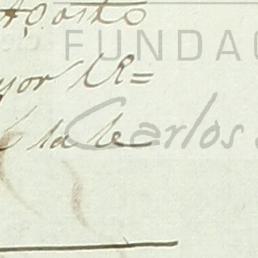 Agosto
FUNDAC
yor el R=
la le
Carlos